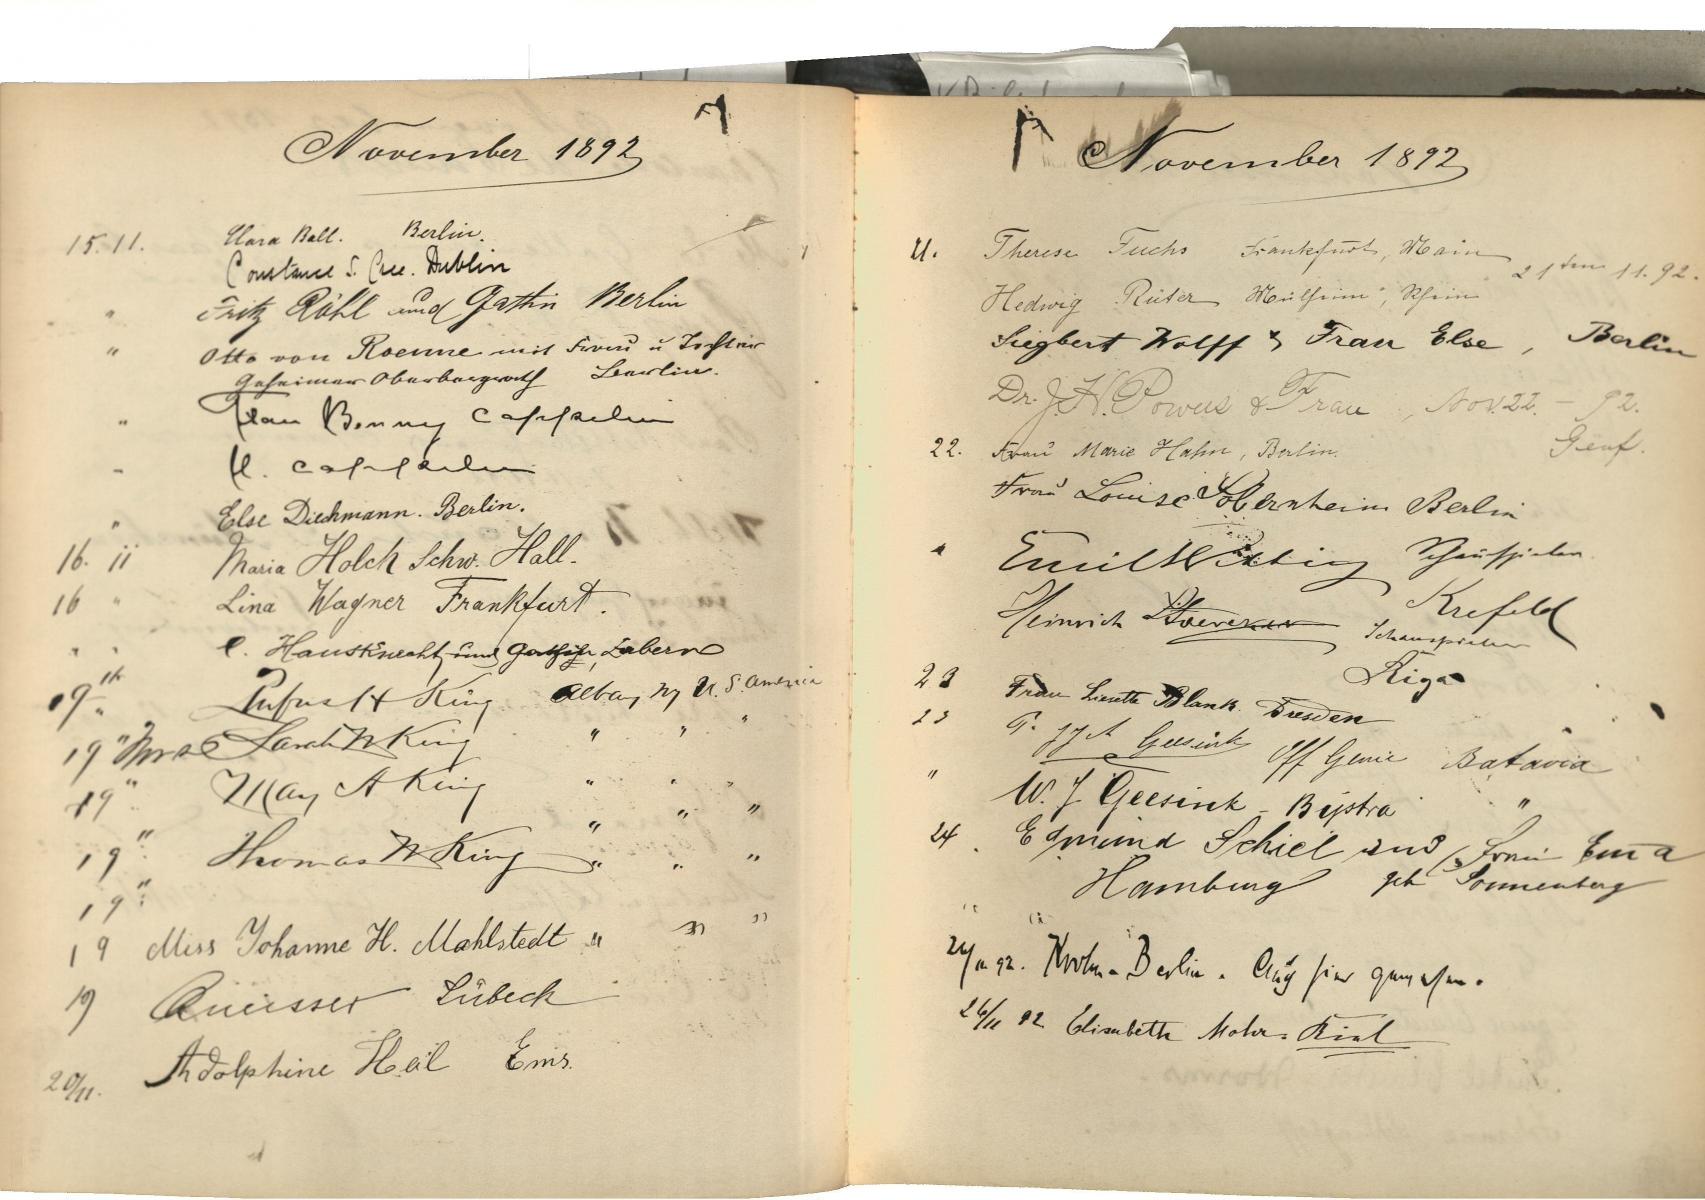 November 1892
15. 11. Clara Ball. Berlin.
Constance S. Cree. Dublin
" Fritz Röhl und Gattin Berlin
" Otto von Roenne mit Frau u Tochter
Geheimer Oberbergrath Berlin.
" Frau Benny Cappelin
" H. Cappelin
" Else Dieckmann. Berlin.
16. 11 Maria Holch Schw. Hall.
16 " Lina Wagner Frankfurt.
" " C. Hausknecht und Gattin, Zabern
19th " Rufus H King Albany Ny U. S. America
19 " Mrs Sarah N King " " "
19 " May A King " " "
19 " Thomas W King " " "
19 " " " "
19 Miss Johanne H. Mahlstedt " " "
19 Lübeck
20/11. Adolphine Heil Ems.
November 1892
21. Therese Fuchs Frankfurt, Main
21ten 11. 92.
Hedwig Rüter Mülheim, Rhein
Siegbert Wolff & Frau Else, Berlin
Dr. J. H. Powers & Frau, Nov. 22 - 92.
Genf.
22. Frau Marie Hahn, Berlin.
Frau Louise Sobernheim Berlin
" Emil Wittig Schauspieler
Krefeld
Heinrich Schauspieler
Riga
23 Frau Lisette Blank. Dresden
23 Geesink Off Genie Batavia
" W. J Geesink - Bijstra "
24. Edmund Schiel und Frau Emma
Hamburg geb Sonnenberg
" "
24/11 92. Krohn - Berlin. Auch hier gewesen.
26/11 92 Elisabeth Mohr - Kiel